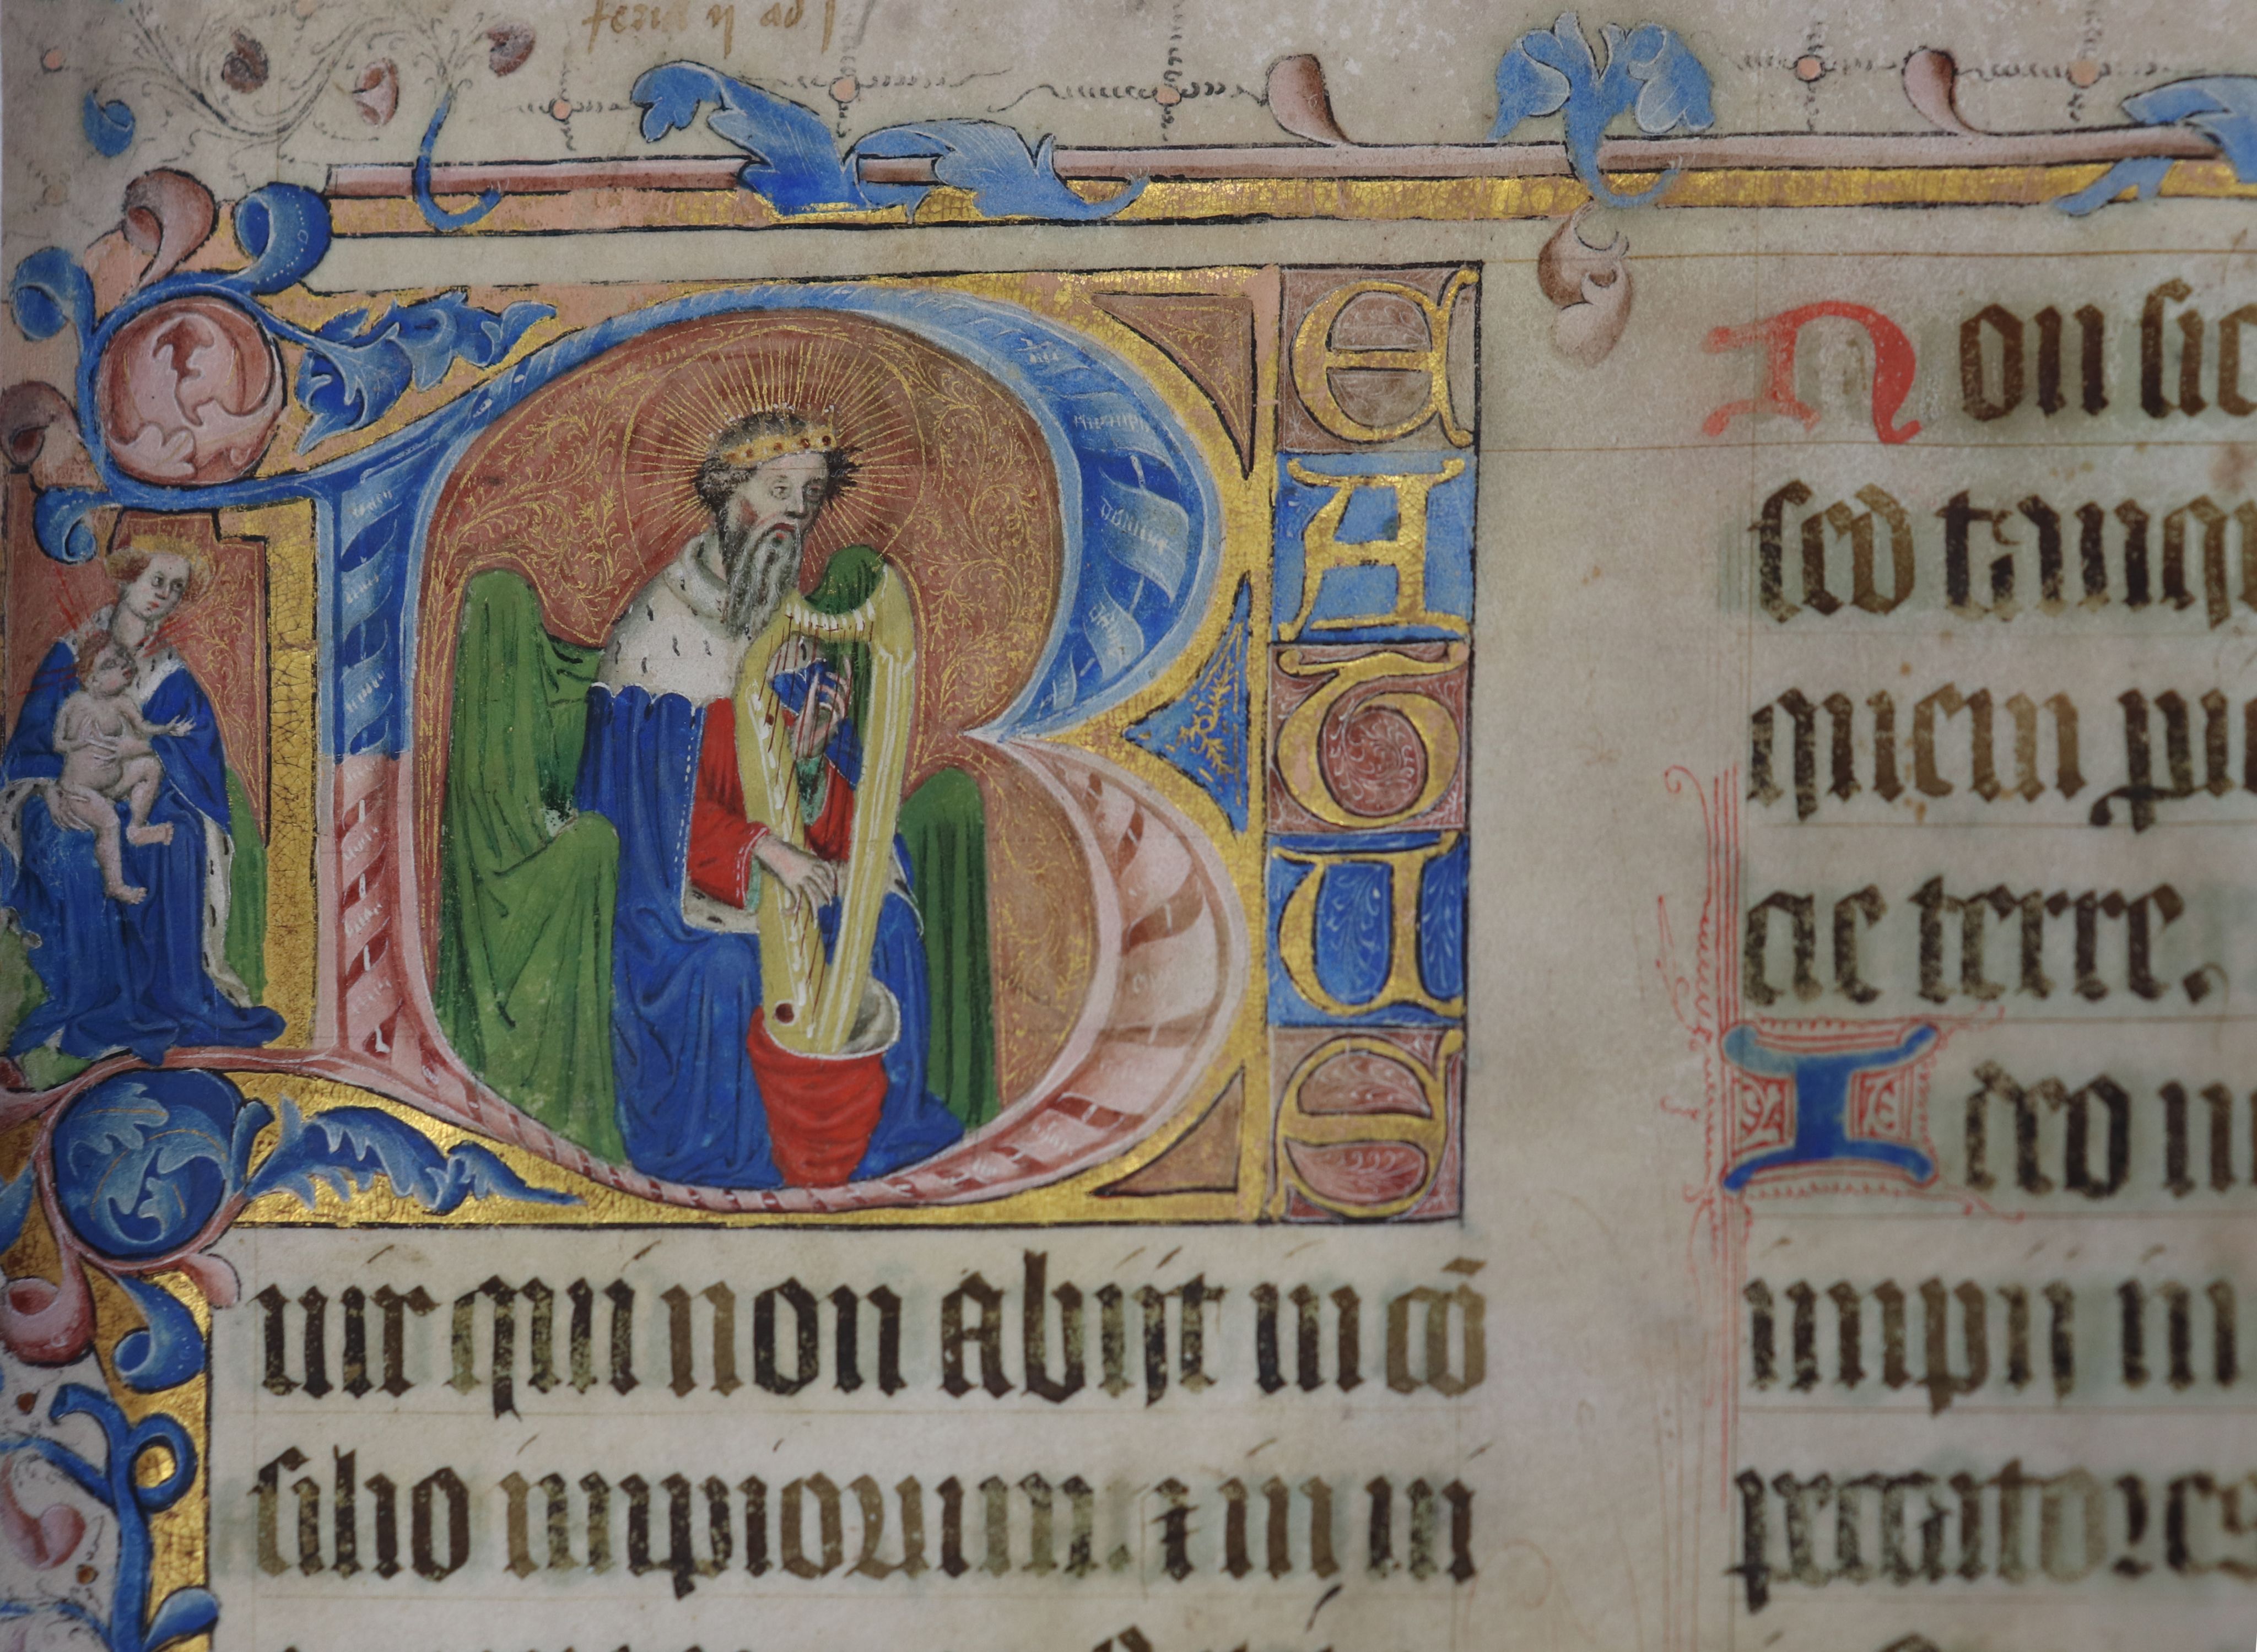 feria ij ad
BEATUS
uir qui non abijt in cō
silio impiorum. ⁊ in ui
Non sic
sed tanq
quem
cie terre.
Ideo
impij in
peccatores